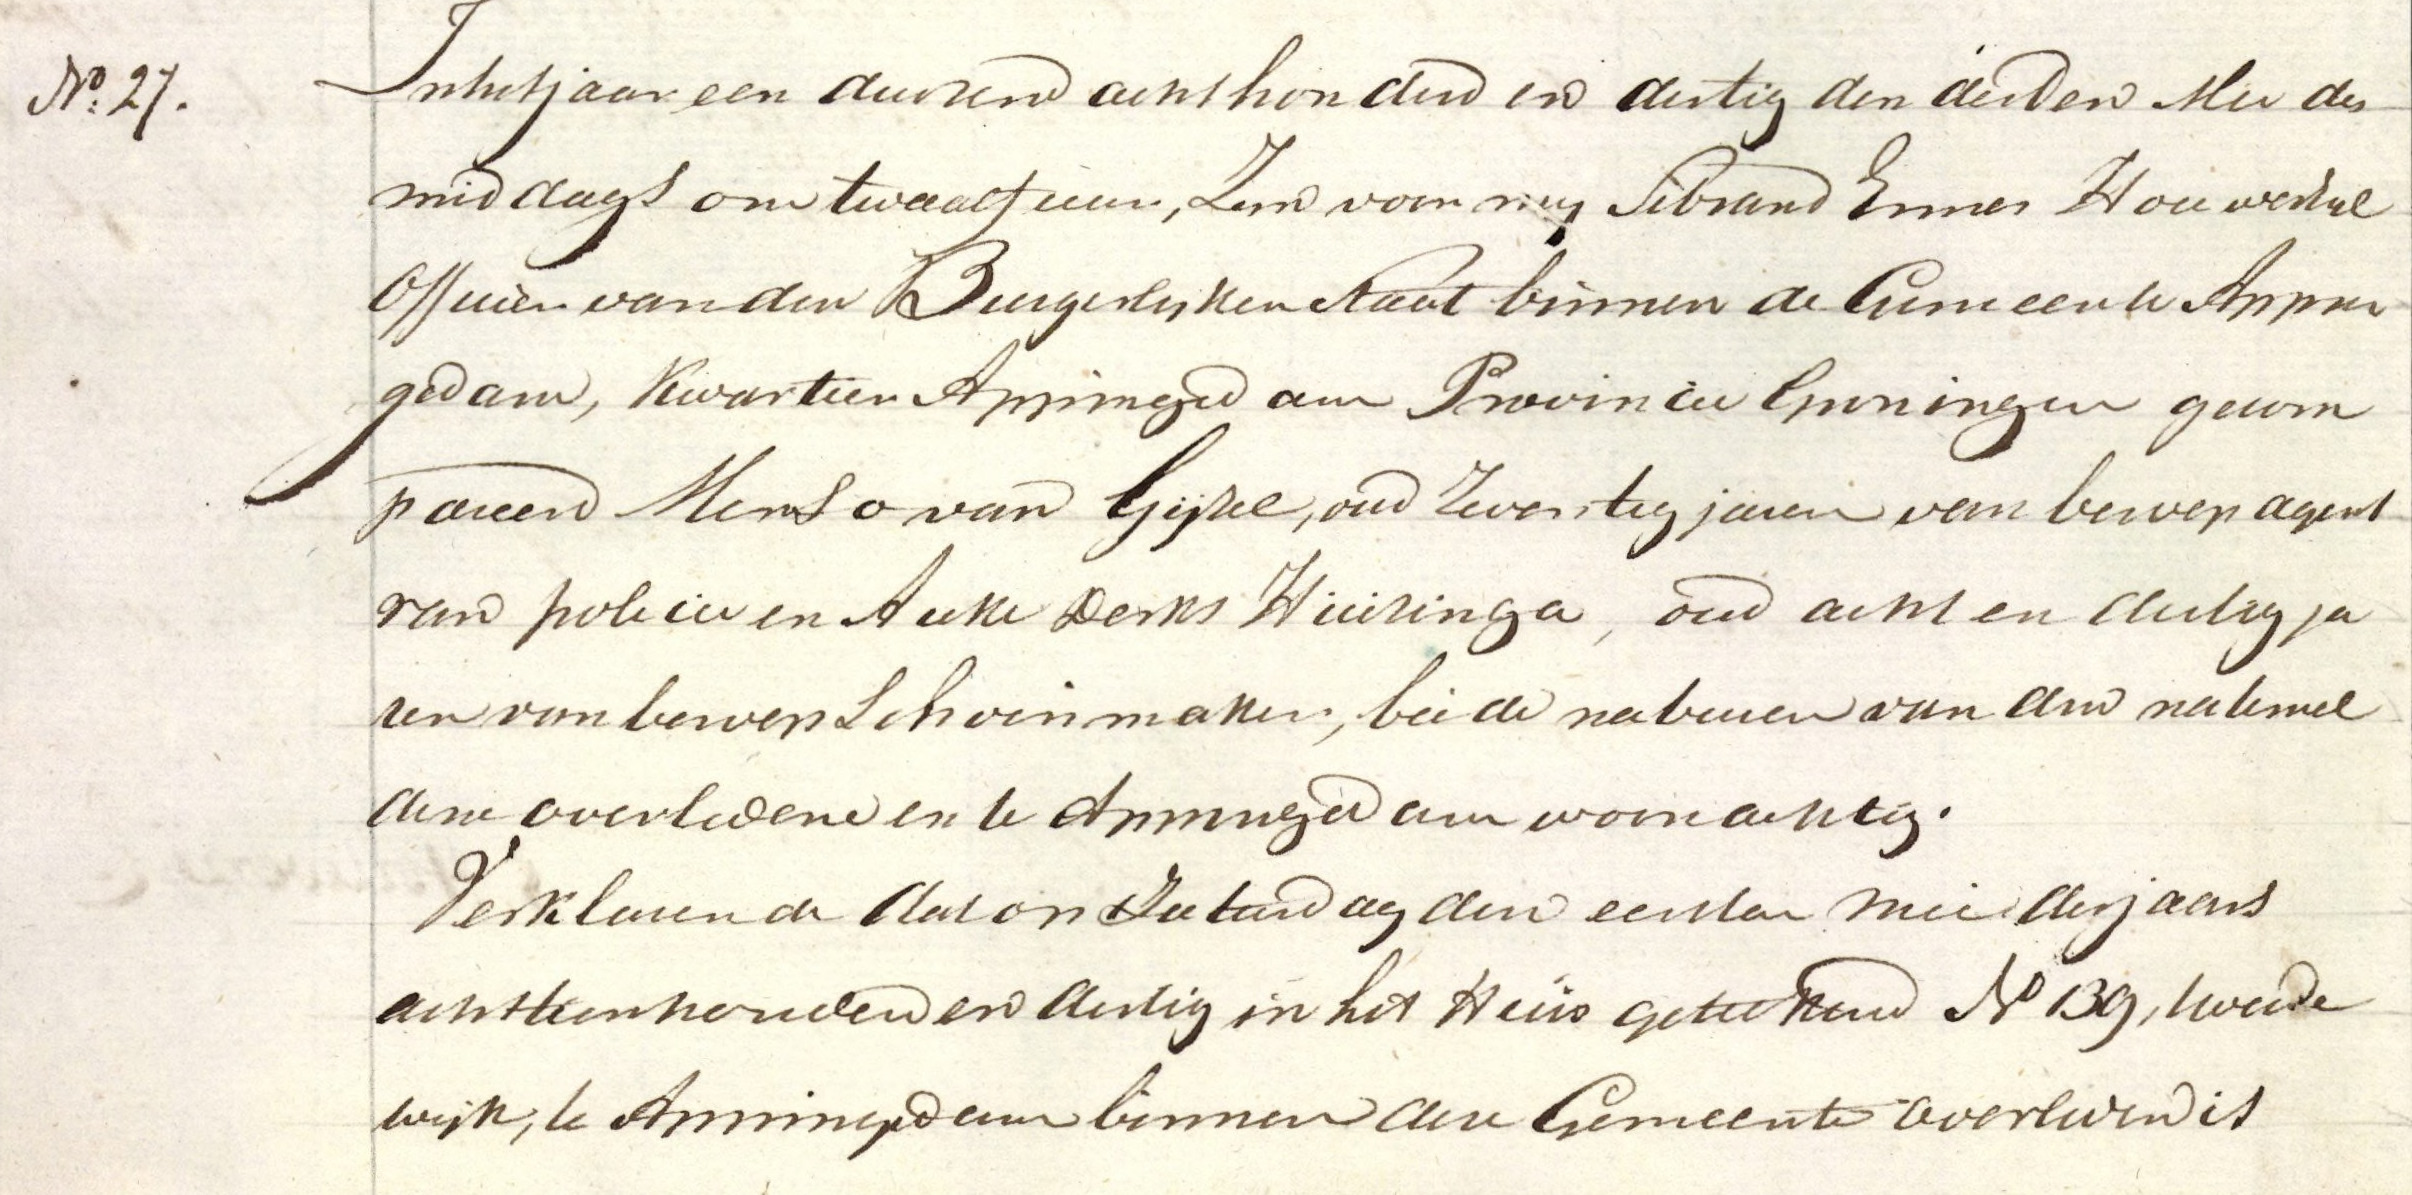 No. 27. In het jaar een duizend acht honderd en dertig den derden Mei des
middags om twaalf uur, Zijn voor my Sibrand Ennes Houwerzyl
Officier van den Burgerlyken Staat binnen de Gemeente Appin
gedam, Kwartier Appingedam Provincie Groningen gecom
pareerd Menso van Gijzel, oud Zeventig jaren van beroep agent
van policie en Auke Derks Huizinga, oud acht en dertig ja
ren van beroep Schoenmaker, beide naburen van den natemel
dene overledene en te Appingedam woonachtig.
Verklarende dat op Zaturdag den eersten Mei dezjaars
achttienhonderd en dertig in het Huis getekend No 139, tweede
wijk, te Appingedam binnen deze Gemeente overleden is